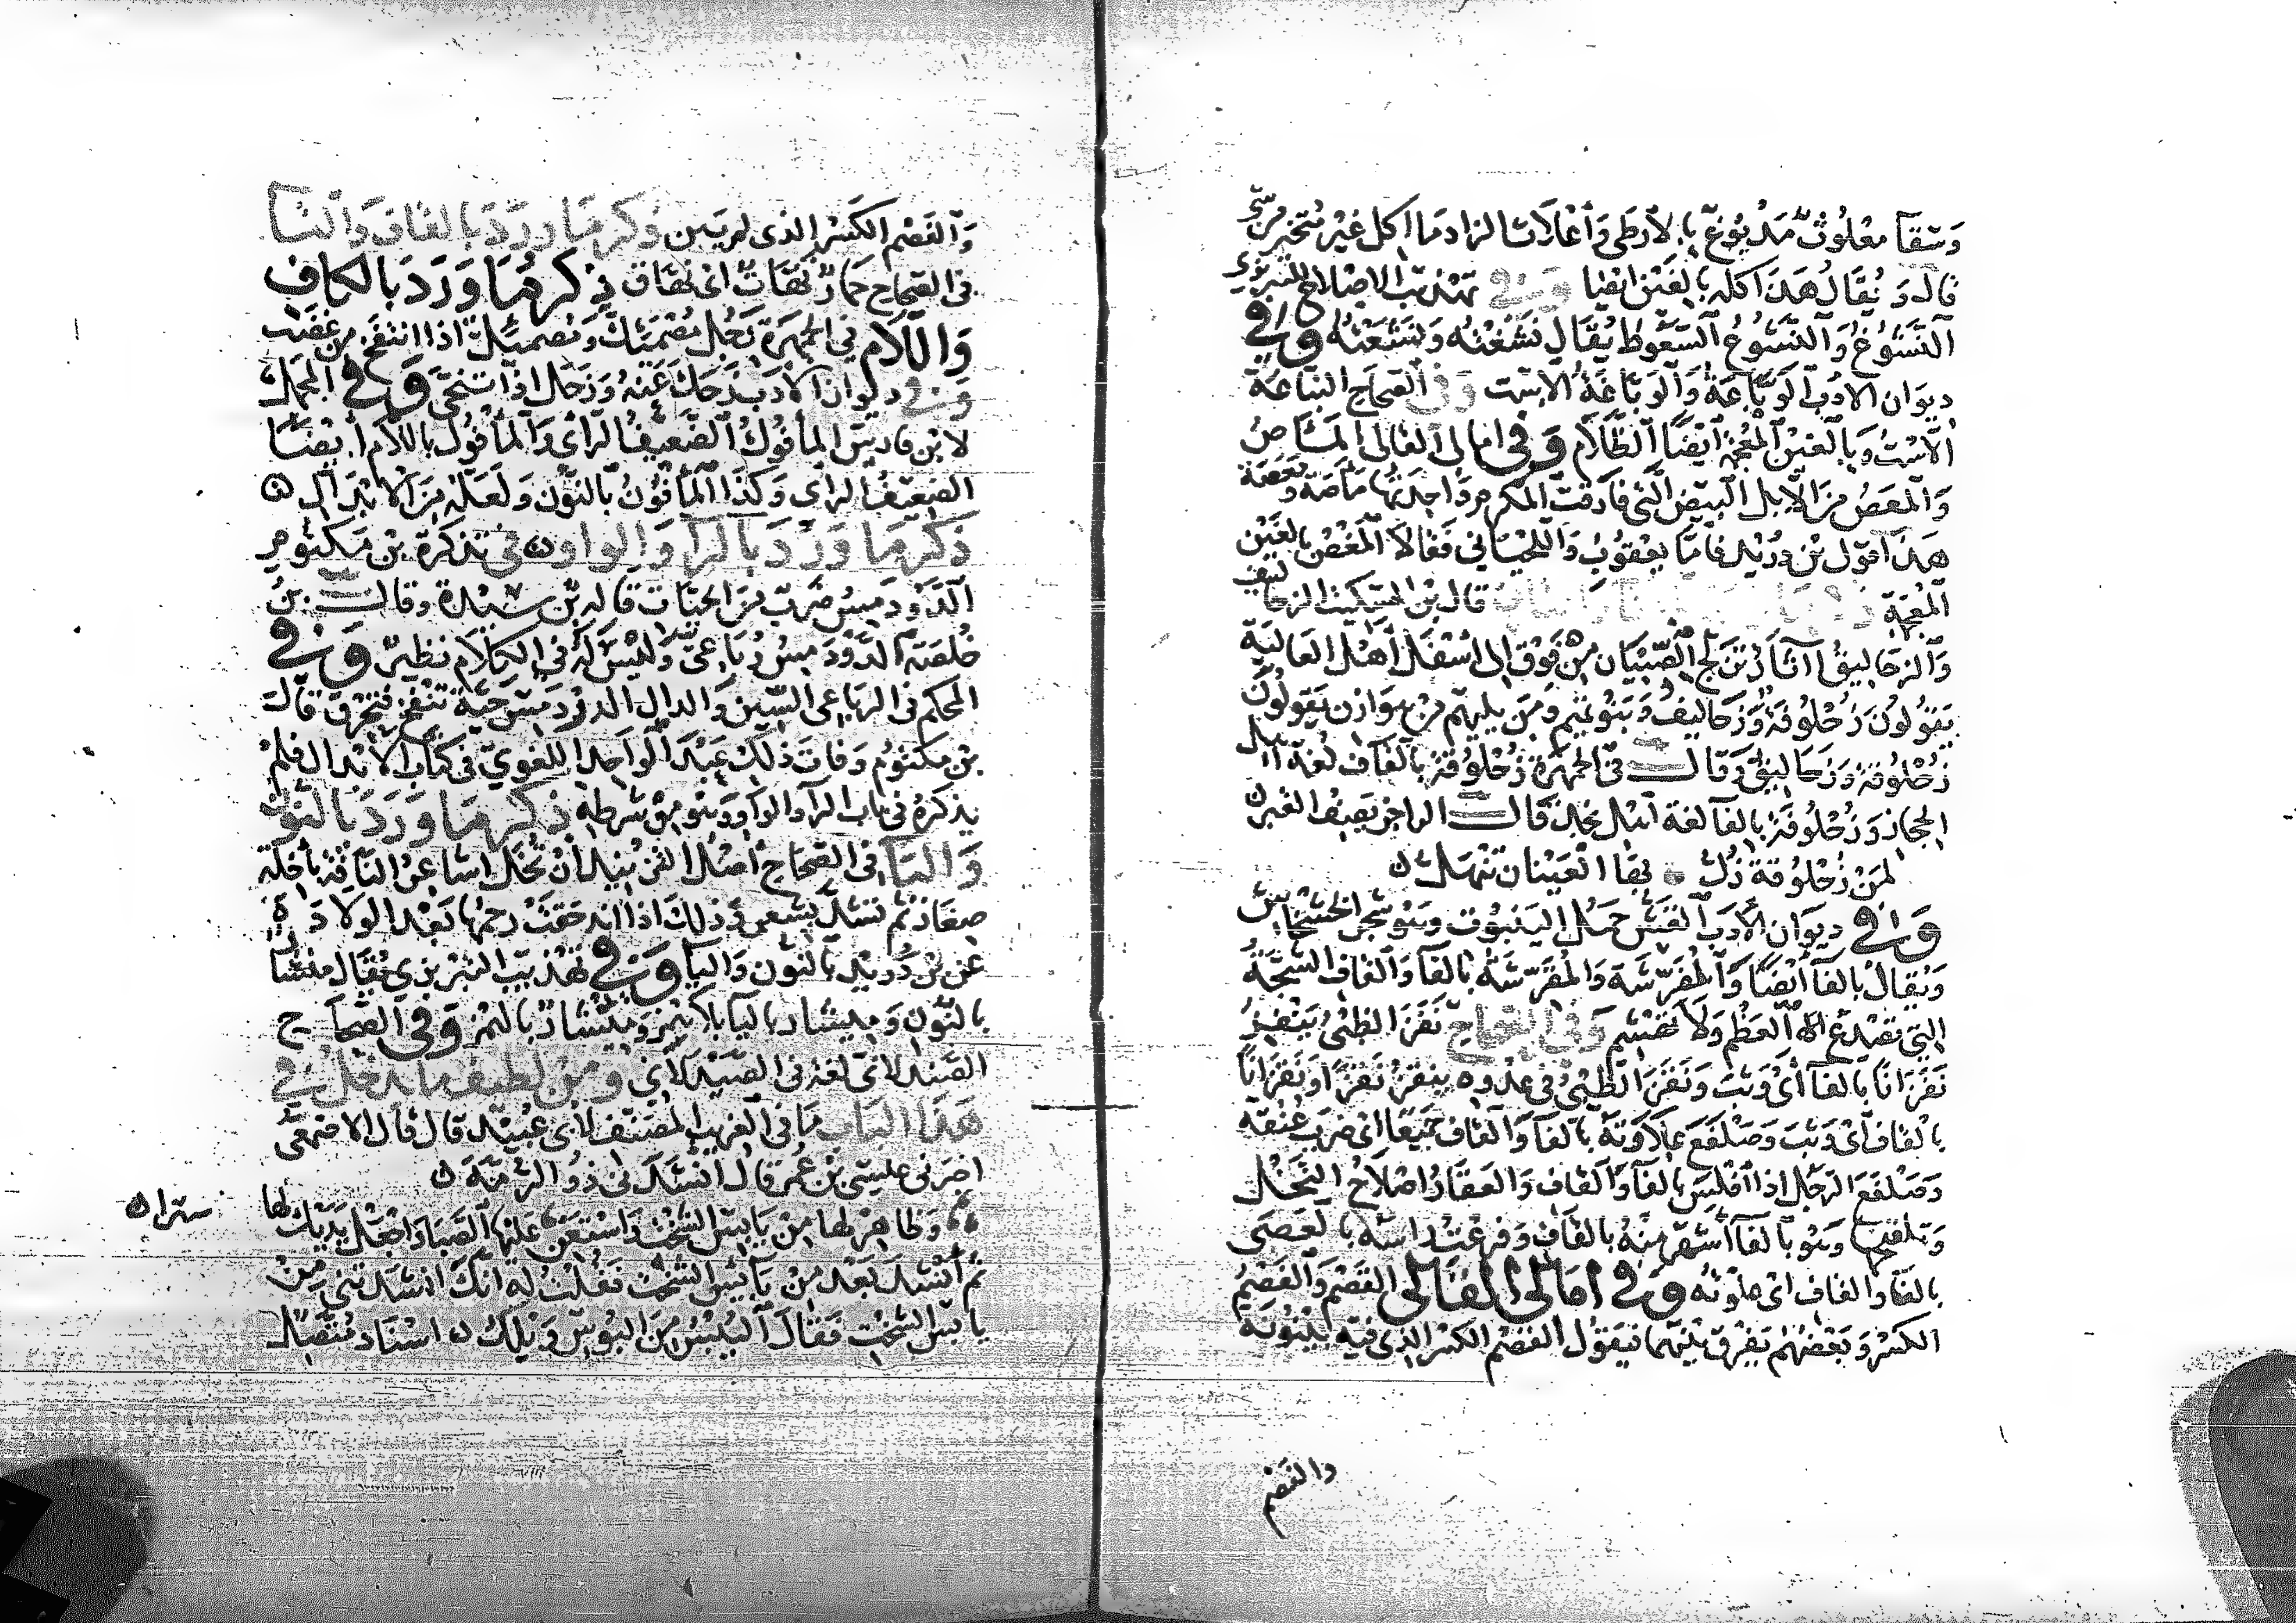 وسقآ معلوث مدبوغ بالأرطى وأعلاث الزاد ما اكل غير متخير من شى
قال ويقال هذا كله بالغين ايضا وفى تهذيب الاصلاح للتبريزى
النشوغ والنشوع السعوط يقال نشغته ونشعته وفى
ديوان الادب الوباعة والوباغة الاست وفى الصحاح النباعة
الاست وبالغين المعجمة ايضا الظلام وفى امالى القالى المـآص
والمعص من الابل البيض التى قارفت الكرم واحدتها مأصة ومعصة
هذا قول بن دريد فاما يعقوب واللحيانى فقالا المغص بالغين
المعجمة قال بن السكيت الزحاليف
والزحاليق آثار تزلج الصبيان من فوق الى اسفل اهل العالية
يقولون زحلوفة وزحاليف وبنو تميم ومن يليهم من هوازن يقولون
زحلوقة وزحاليق وقال فى الجمهرة زحلوقة بالقاف لغة اهل
الحجاز وزحلوفة بالفا لغة اهل نجد قال الراجز يصف القبر
لمن زحلوقة زل بها العينان تنهل
وفى ديوان الأدب القش حمل الينبوت وهو شجر الخشخاش
ويقال بالفا ايضا والمفرشة والمقرشة بالفا والقاف الشجة
التى تصدع العظم ولا تهشم وفى الصحاح نفز الظبى ينفز
نفزانا بالفا اى وثب ونقز الظبى فى عدوه ينقز نقزا ونقزانا
بالقاف اى وثب وصلفع علاوته بالفا والقاف جميعا اى ضرب عنقه
وصلفع الرجل اذا افلس بالفا والقاف والعفار اصلاح النخل
وتلقيحها وهو بالفا اشهر منه بالقاف وفرعت راسه بالعصى
بالفا والقاف اى علوته وفى امالى القالى القصم والفصم
الكسر وبعضهم يفرق بينهما فيقول القصم الكسر الذى فيه بينونة
والفصم
والفصم الكسر الذى لم يبين ذكر ما ورد بالقاف والتـا
فى الصحاح حمار نهقات اى نهقاق ذكر ما ورد بالكاف
واللام فى الجمهرة رجل مصمئك ومصمئل اذا انتفخ من غضب
وفى ديوان الادب زحك عنه وزحل اذا تنحى وفى المجمل
لابن فارس المأفوك الضعيف الراى والمأفول باللام ايضـا
الضعيف الراى وكذا المأفون بالنون ولعله من الابدال
ذكر ما ورد بالرا والواو فى تذكرة بن مكتوم
الدودمس ضرب من الحيات قاله بن سيدة وقال بن
خلصة الدودمس رباعى وليس له فى الكلام نظير وفى
المحكم فى الرباعى السين والدال الدودمس حية تنفخ فتحرق قال
بن مكتوم وفات ذلك عبد الواحد اللغوى فى كتاب الابدال فلم
يذكره فى باب الرا والواو وهو من شرطه ذكر ما ورد بالنون
واليا فى الصحاح اصل الفن بيد ان تخل اشاعر الناقة باخلة
صغار ثم تشد بشعر وذلك اذا اندحقت رحمها بعد الولادة
عن بن دريد بالنون واليا وفى تهذيب التبريزى يقال منشا
بالنون وميشار باليا بلا همز ومئشار بالهمز وفى الصحا ح
الصندلانى لغة فى الصيدلانى ومن لطيف ما يدخل فى
هذا الباب ما فى الغريب المصنف لابى عبيد قال قال الاصمعى
اخبرنى عيسى بن عمر قال انشدنى ذو الرمة
وظاهر لها من يابس الشخت واستعن عليها الصبا واجعل يديك لها
سترا
ثم انشد بعد من بائس الشخت فقلت له انك انشدتنى من
يابس الشخت فقال اليبس من البوس وذلك اسناد متصل